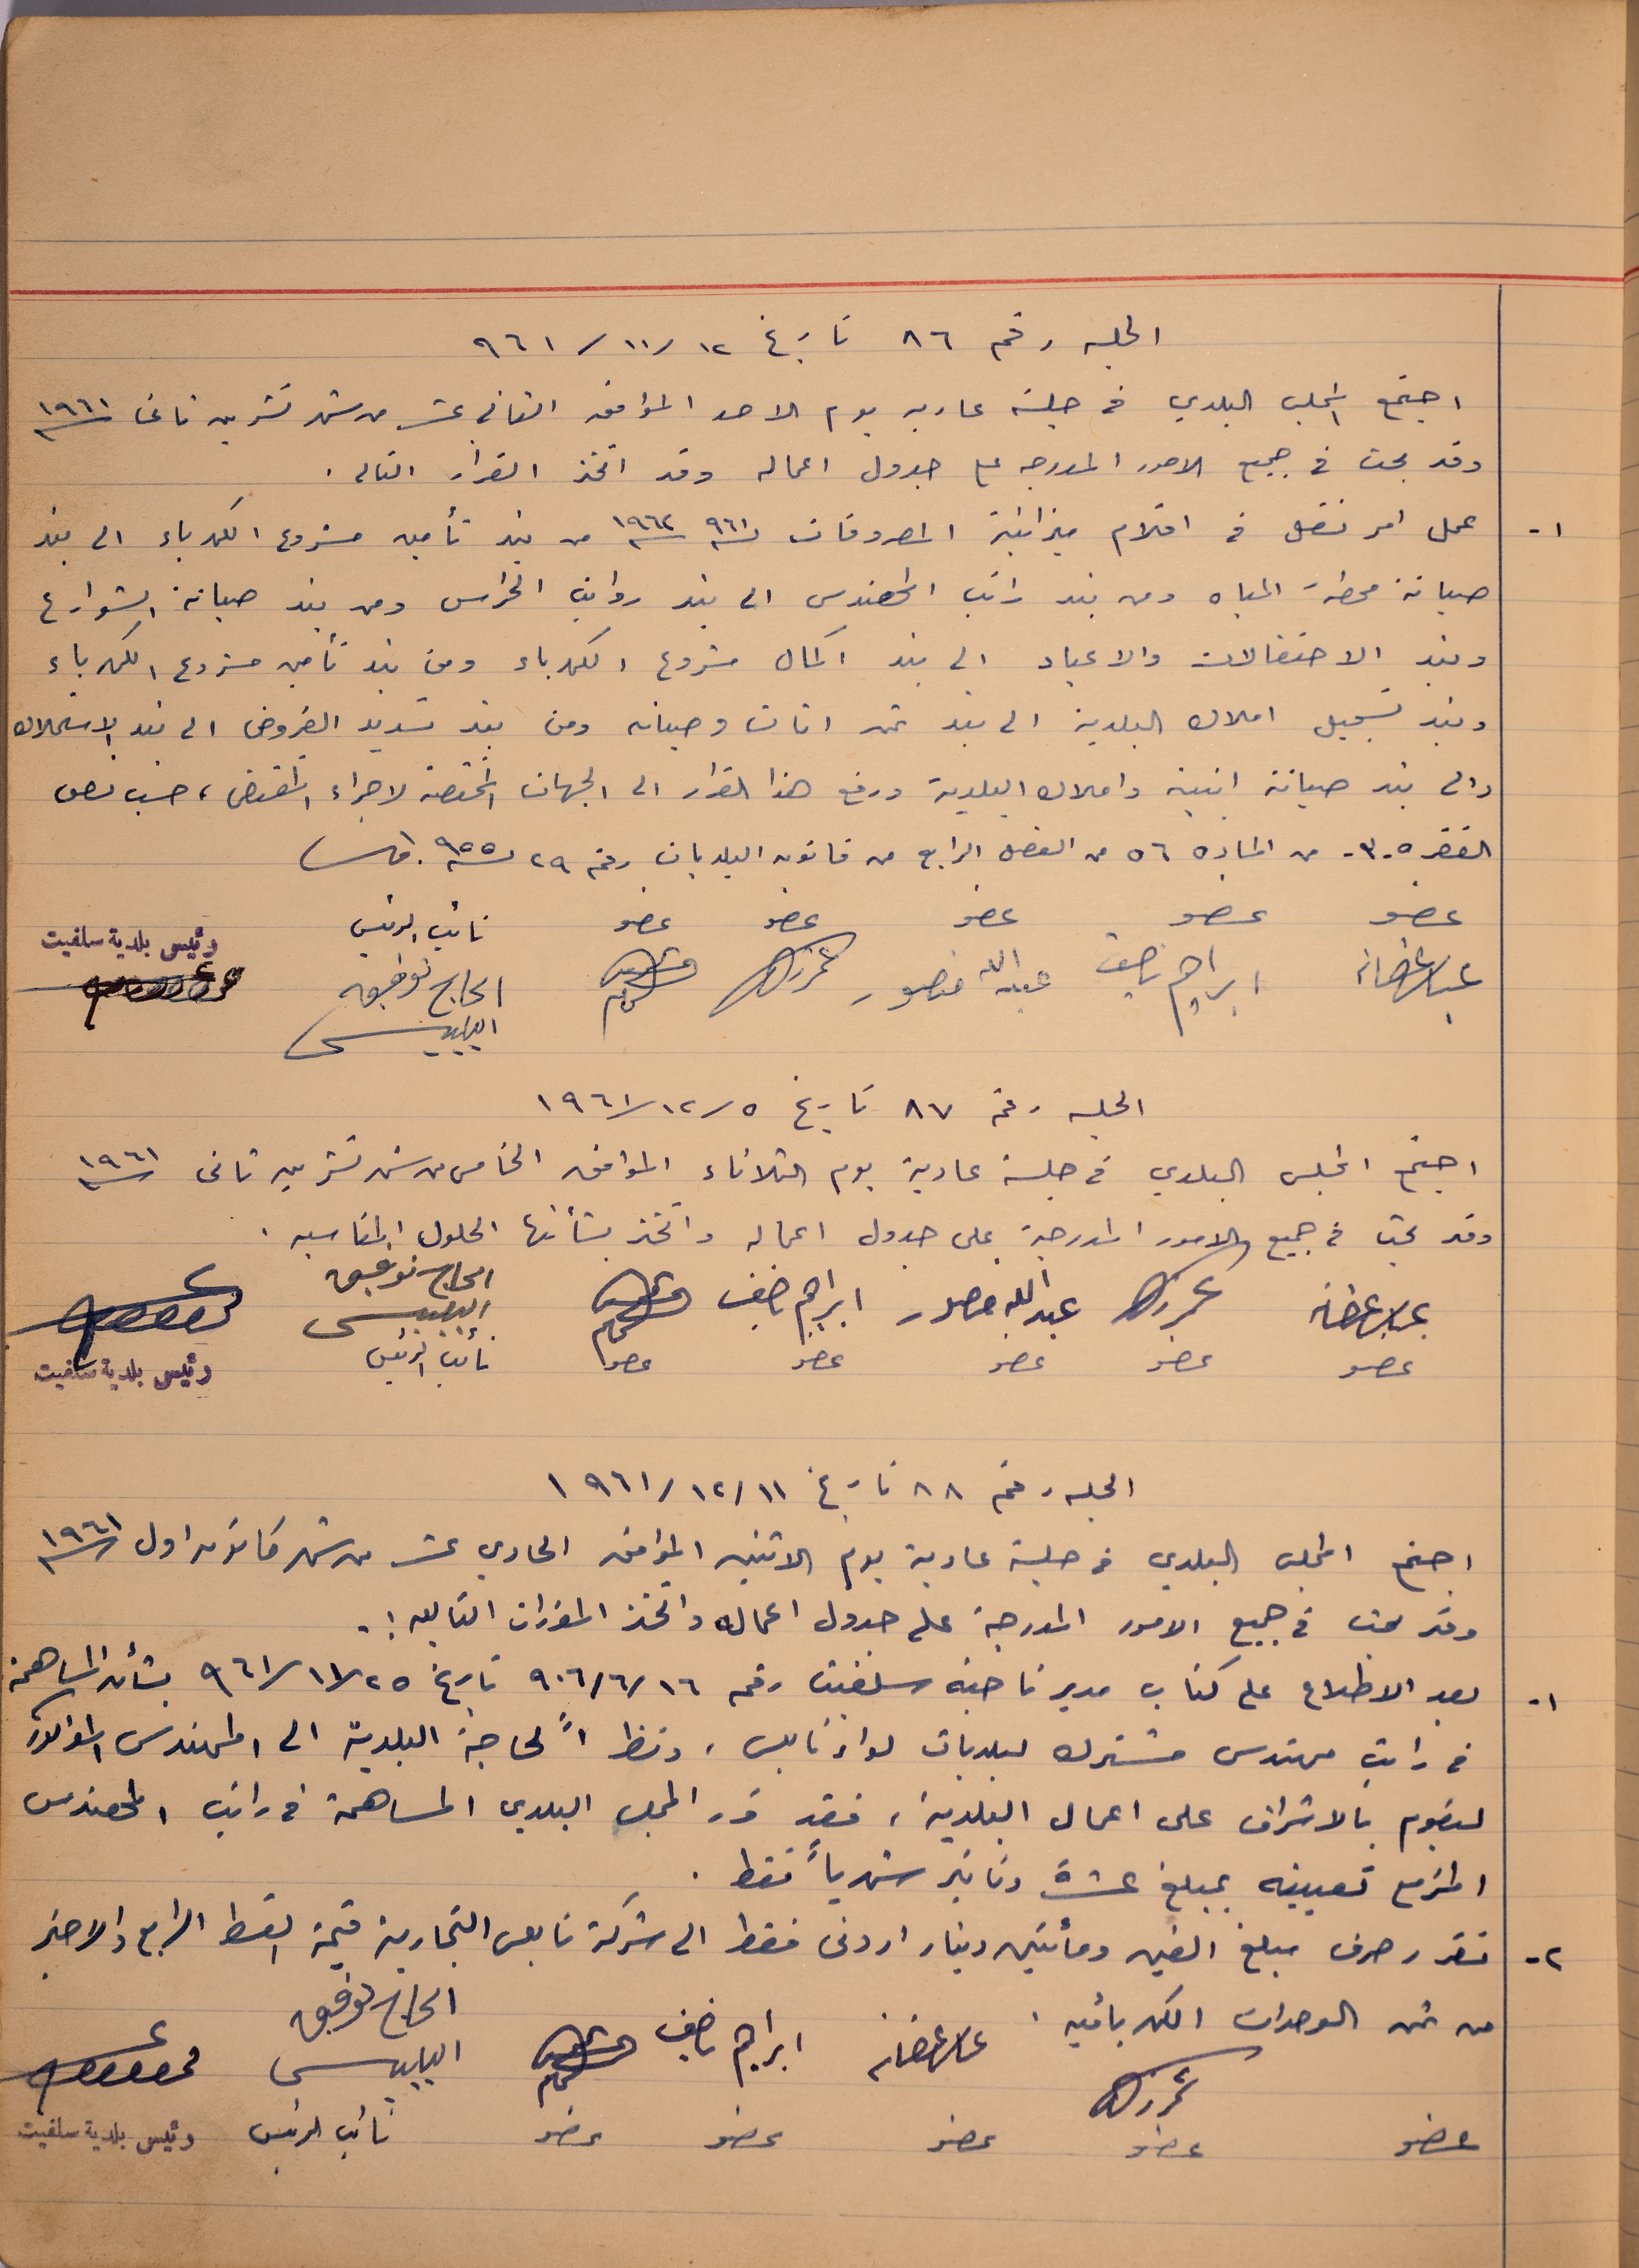 الجلسه رقم ٨٦ تاريخ ١٢/١١/٩٦١
اجتمع المجلس البلدي في جلسة عاديه يوم الاحد الموافق الثاني عشر من شهر تشرين ثاني سنة ١٩٦١
وقد بحث في جميع الامور المدرجه على جدول اعماله وقد اتخذ القرار التالي .
١- عمل امر نقل في اقلام ميزانية المصروفات لسنة ٩٦١ سنة ١٩٦٢ من بند تأمين مشروع الكهرباء الى بند
صيانة محطة المياه ومن بند راتب المهندس الى بند رواتب الحراس ومن بند صيانة الشوارع
وبند الاحتفالات والاعياد الى بند اكمال مشروع الكهرباء ومن بند تأمين مشروع الكهرباء
وبند تسجيل املاك البلدية الى بند ثمن اثاث وصيانه ومن بند تسديد القروض الى بند الاستملاك
والى بند صيانة ابنية واملاك البلدية ورفع هذا القرار الى الجهات المختصة لاجراء المقتضى ، حسب نص
الفقره -٣- من الماده ٥٦ من الفصل الرابع من قانون البلديات رقم ٢٩ لسنة ٩٥٥ .
عضو عضو عضو عضو عضو نائب الرئيس رئيس بلدية سلفيت
ابراهيم ناصيف عبدالله منصور الحاج توفيق
الجلسه رقم ٨٧ تاريخ ٥/١٢/١٩٦١
اجتمع المجلس البلدي في جلسة عادية يوم الثلاثاء الموافق الخامس من شهر تشرين ثاني سنة ١٩٦١
وقد بحث في جميع الامور المدرجة على جدول اعماله واتخذ بشأنها الحلول المناسبه .
عبدالله منصور ابراهيم ناصيف الحاج توفيق
عضو عضو عضو عضو عضو نائب الرئيس رئيس بلدية سلفيت
الجلسه رقم ٨٨ تاريخ ١١/١٢/١٩٦١
اجتمع المجلس البلدي في جلسة عادية يوم الاثنين الموافق الحادي عشر من شهر كانون اول سنة ١٩٦١
وقد بحث في جميع الامور المدرجة على جدول اعماله واتخذ المقررات التاليه :-
١- بعد الاطلاع على كتاب مدير ناحية سلفيت رقم ١٦/٦/٩٠٦ تاريخ ٢٥/١١/٩٦١ بشأن المساهمة
في راتب مهندس مشترك لبلديات لواء نابلس ، ونظراً لحاجة البلدية الى المهندس المذكور
ليقوم بالاشراف على اعمال البلدية ، فقد قرر المجلس البلدي المساهمة في راتب المهندس
المزمع تعيينه بمبلغ عشرة دنانير شهرياً فقط .
٢- تقرر صرف مبلغ الفين ومأتين دينار اردني فقط الى شركة نابلس التجارية قيمة القسط الرابع والاخير
من ثمن الوحدات الكهربائيه .
ابراهيم ناصيف الحاج توفيق
عضو عضو عضو عضو عضو نائب الرئيس رئيس بلدية سلفيت